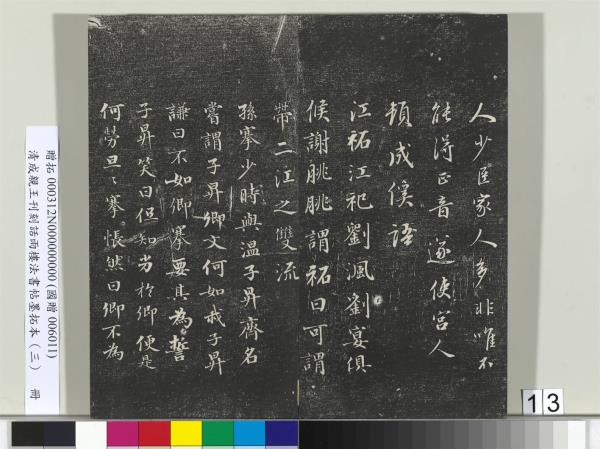 人少臣家人多非唯不
能得正音遂使宮人
頓成傒語
江祏江祀劉渢劉宴俱
候謝朓朓謂祏曰可謂
帶二江之雙流
孫搴少時與溫子昇齊名
嘗謂子昇卿文何如我子昇
謙曰不如卿搴要其為誓
子昇笑曰但知劣於卿便是
何勞旦旦搴悵然曰卿不為
贈拓000312N000000000(國贈006011)
清成親王刊刻詒晉樓法書帖墨拓本(三) 冊
13